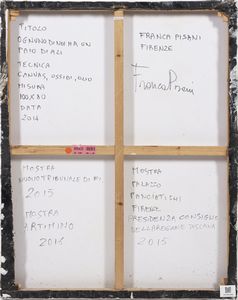 TITOLO
OGNUNO DI NOI HA UN
PAIO DI ALI
TECNICA
CANVAS, OSSIDI, OLIO
MISURA
100X80
DATA
2014
FRANCA PISANI
FIRENZE
Franca Pisani
MOSTRA
NUOVO TRIBUNALE DI FI
2015
MOSTRA
ARTIMINO
2015
MOSTRA
PALAZZO
PANCIATICHI
FIRENZE
PRESIDENZA CONSIGLIO
DELLA REGIONE TOSCANA
2015